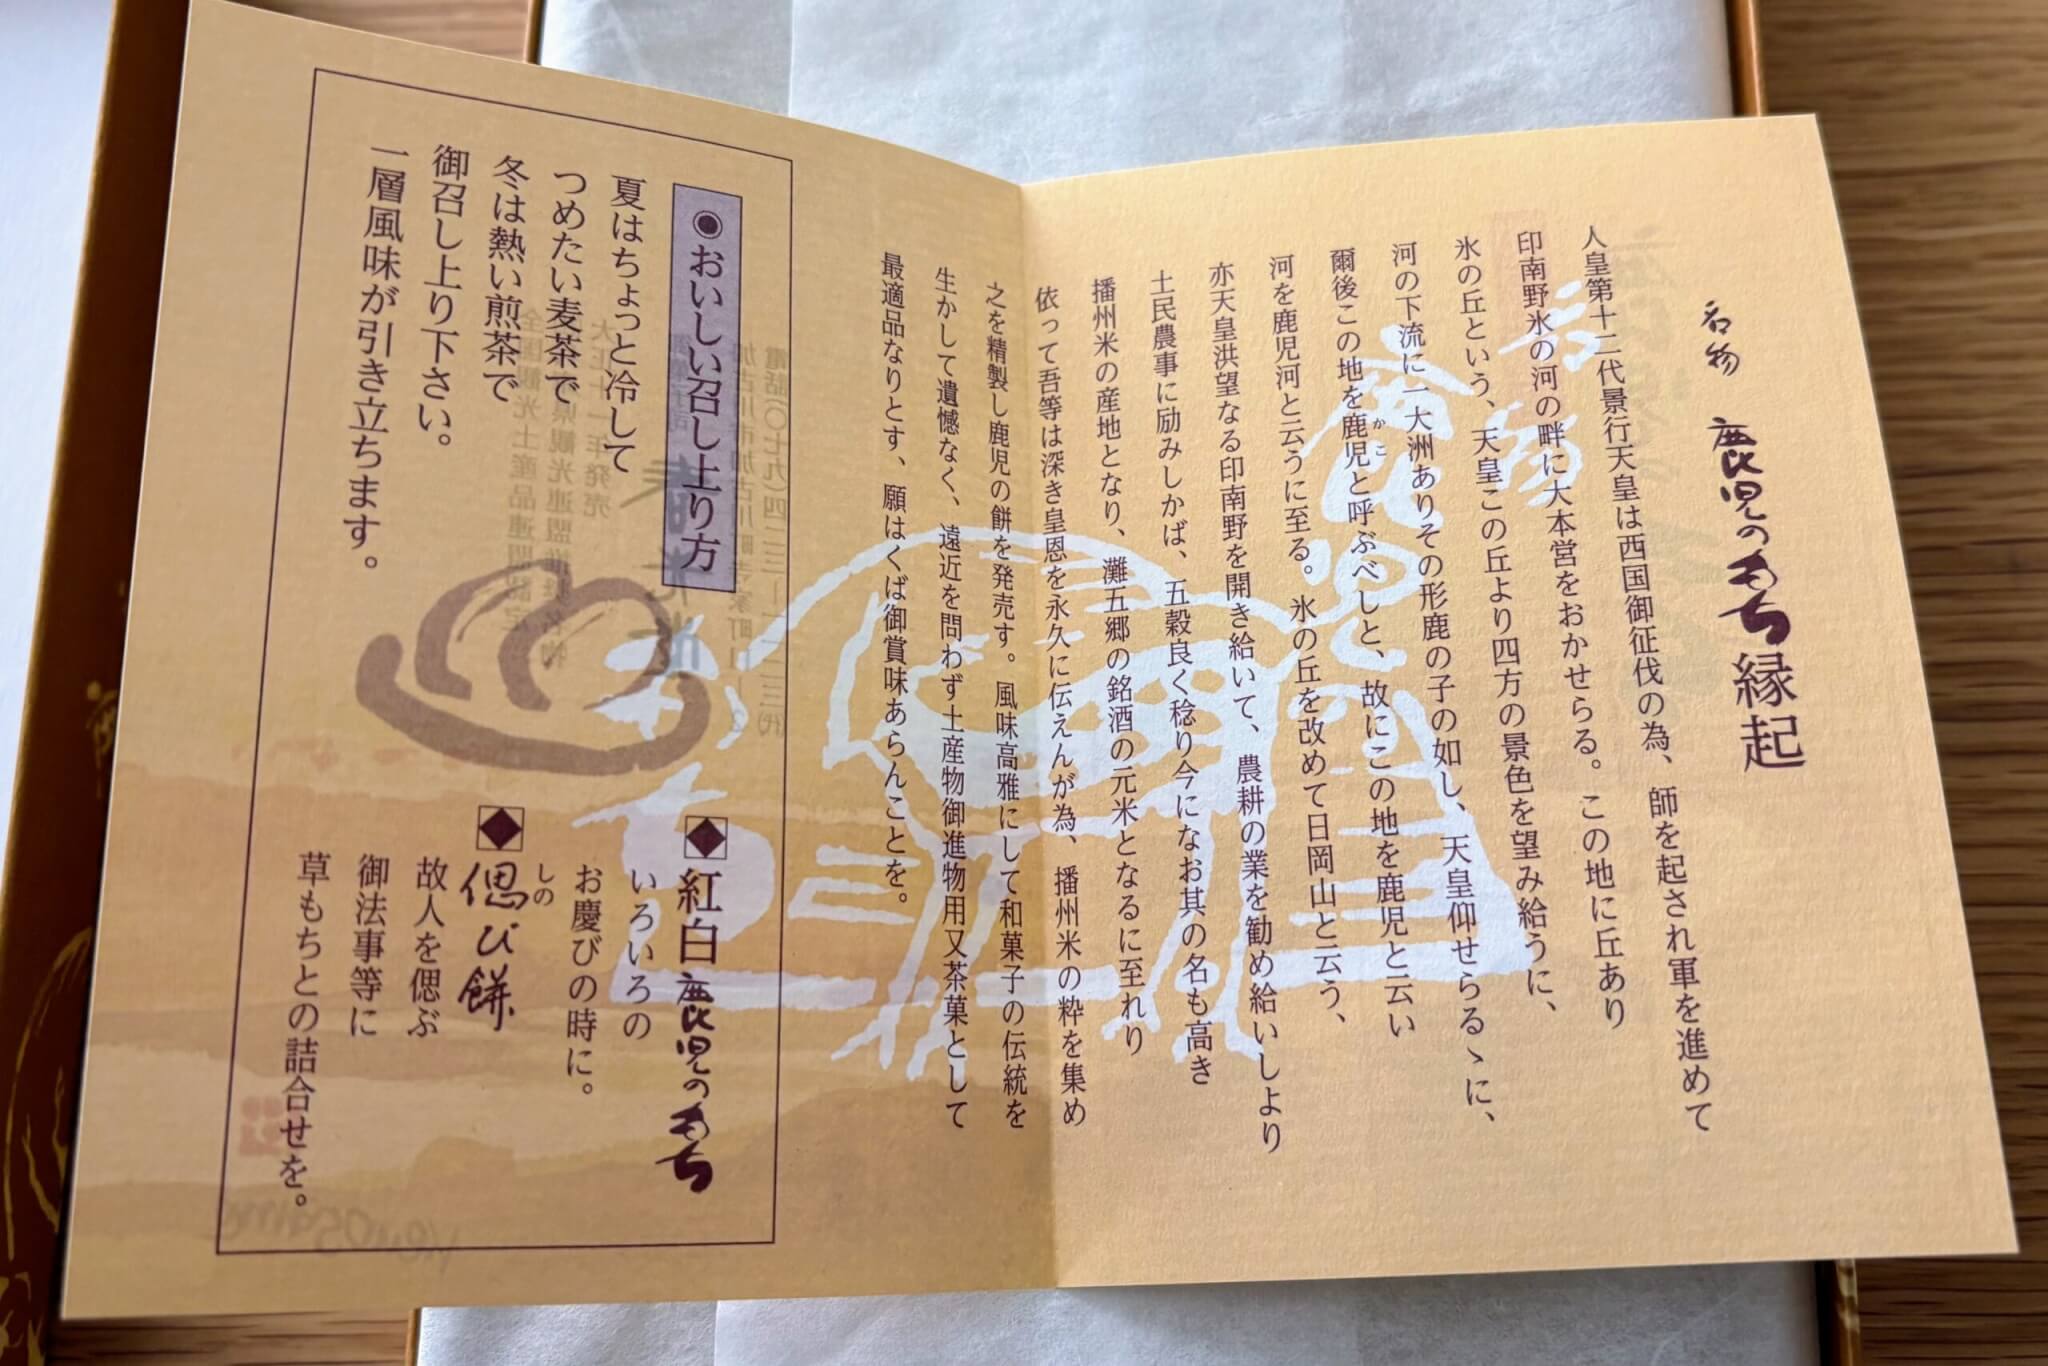 名物 鹿児のもち縁起
人皇第十二代景行天皇は西国御征伐の為、師を起され軍を進めて
印南野氷の河の畔に大本営をおかせらる。この地に丘あり
氷の丘という、天皇この丘より四方の景色を望み給うに、
河の下流に一大洲ありその形鹿の子の如し、天皇仰せらるゝに、
爾後この地を鹿児と呼ぶべしと、故にこの地を鹿児と云い
かこ
河を鹿児河と云うに至る。氷の丘を改めて日岡山と云う、
亦天皇洪望なる印南野を開き給いて、農耕の業を勧め給いしより
土民農事に励みしかば、五穀良く稔り今になお其の名も高き
播州米の産地となり、灘五郷の銘酒の元米となるに至れり
依って吾等は深き皇恩を永久に伝えんが為、播州米の粋を集め
之を精製し鹿児の餅を発売す。風味高雅にして和菓子の伝統を
生かして遺憾なく、遠近を問わず土産物御進物用又茶菓として
最適品なりとす、願はくば御賞味あらんことを。
名物
鹿児の
もち
◉おいしい召し上り方
夏はちょっと冷して
つめたい麦茶で
冬は熱い煎茶で
御召し上り下さい。
一層風味が引き立ちます。
紅白鹿児のもち
いろいろの
お慶びの時に。
偲び餅
しの
故人を偲ぶ
御法事等に
草もちとの詰合せを。